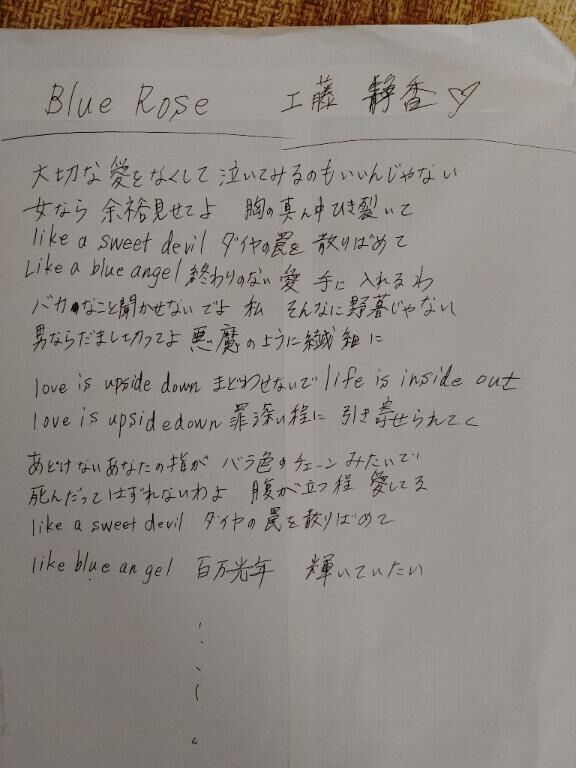 Blue Rose 工藤 静香♡
大切な愛をなくして 泣いてみるのもいいんじゃない
女なら 余裕見せてよ 胸の真ん中ひき裂いて
like a sweet devil ダイヤの罠を 散りばめて
Like a blue angel 終わりのない 愛 手に入れるわ
バカなこと聞かせないでよ 私 そんなに野暮じゃない
男ならだまし切ってよ 悪魔のように繊細に
love is upside down まどわせないで life is inside out
love is upside down 罪深い程に 引き寄せられてく
あどけないあなたの指が バラ色のチェーンみたいで
死んだってはずれないわよ 腹が立つ程 愛してる
like a sweet devil ダイヤの罠を散りばめて
like blue angel 百万光年 輝いていたい